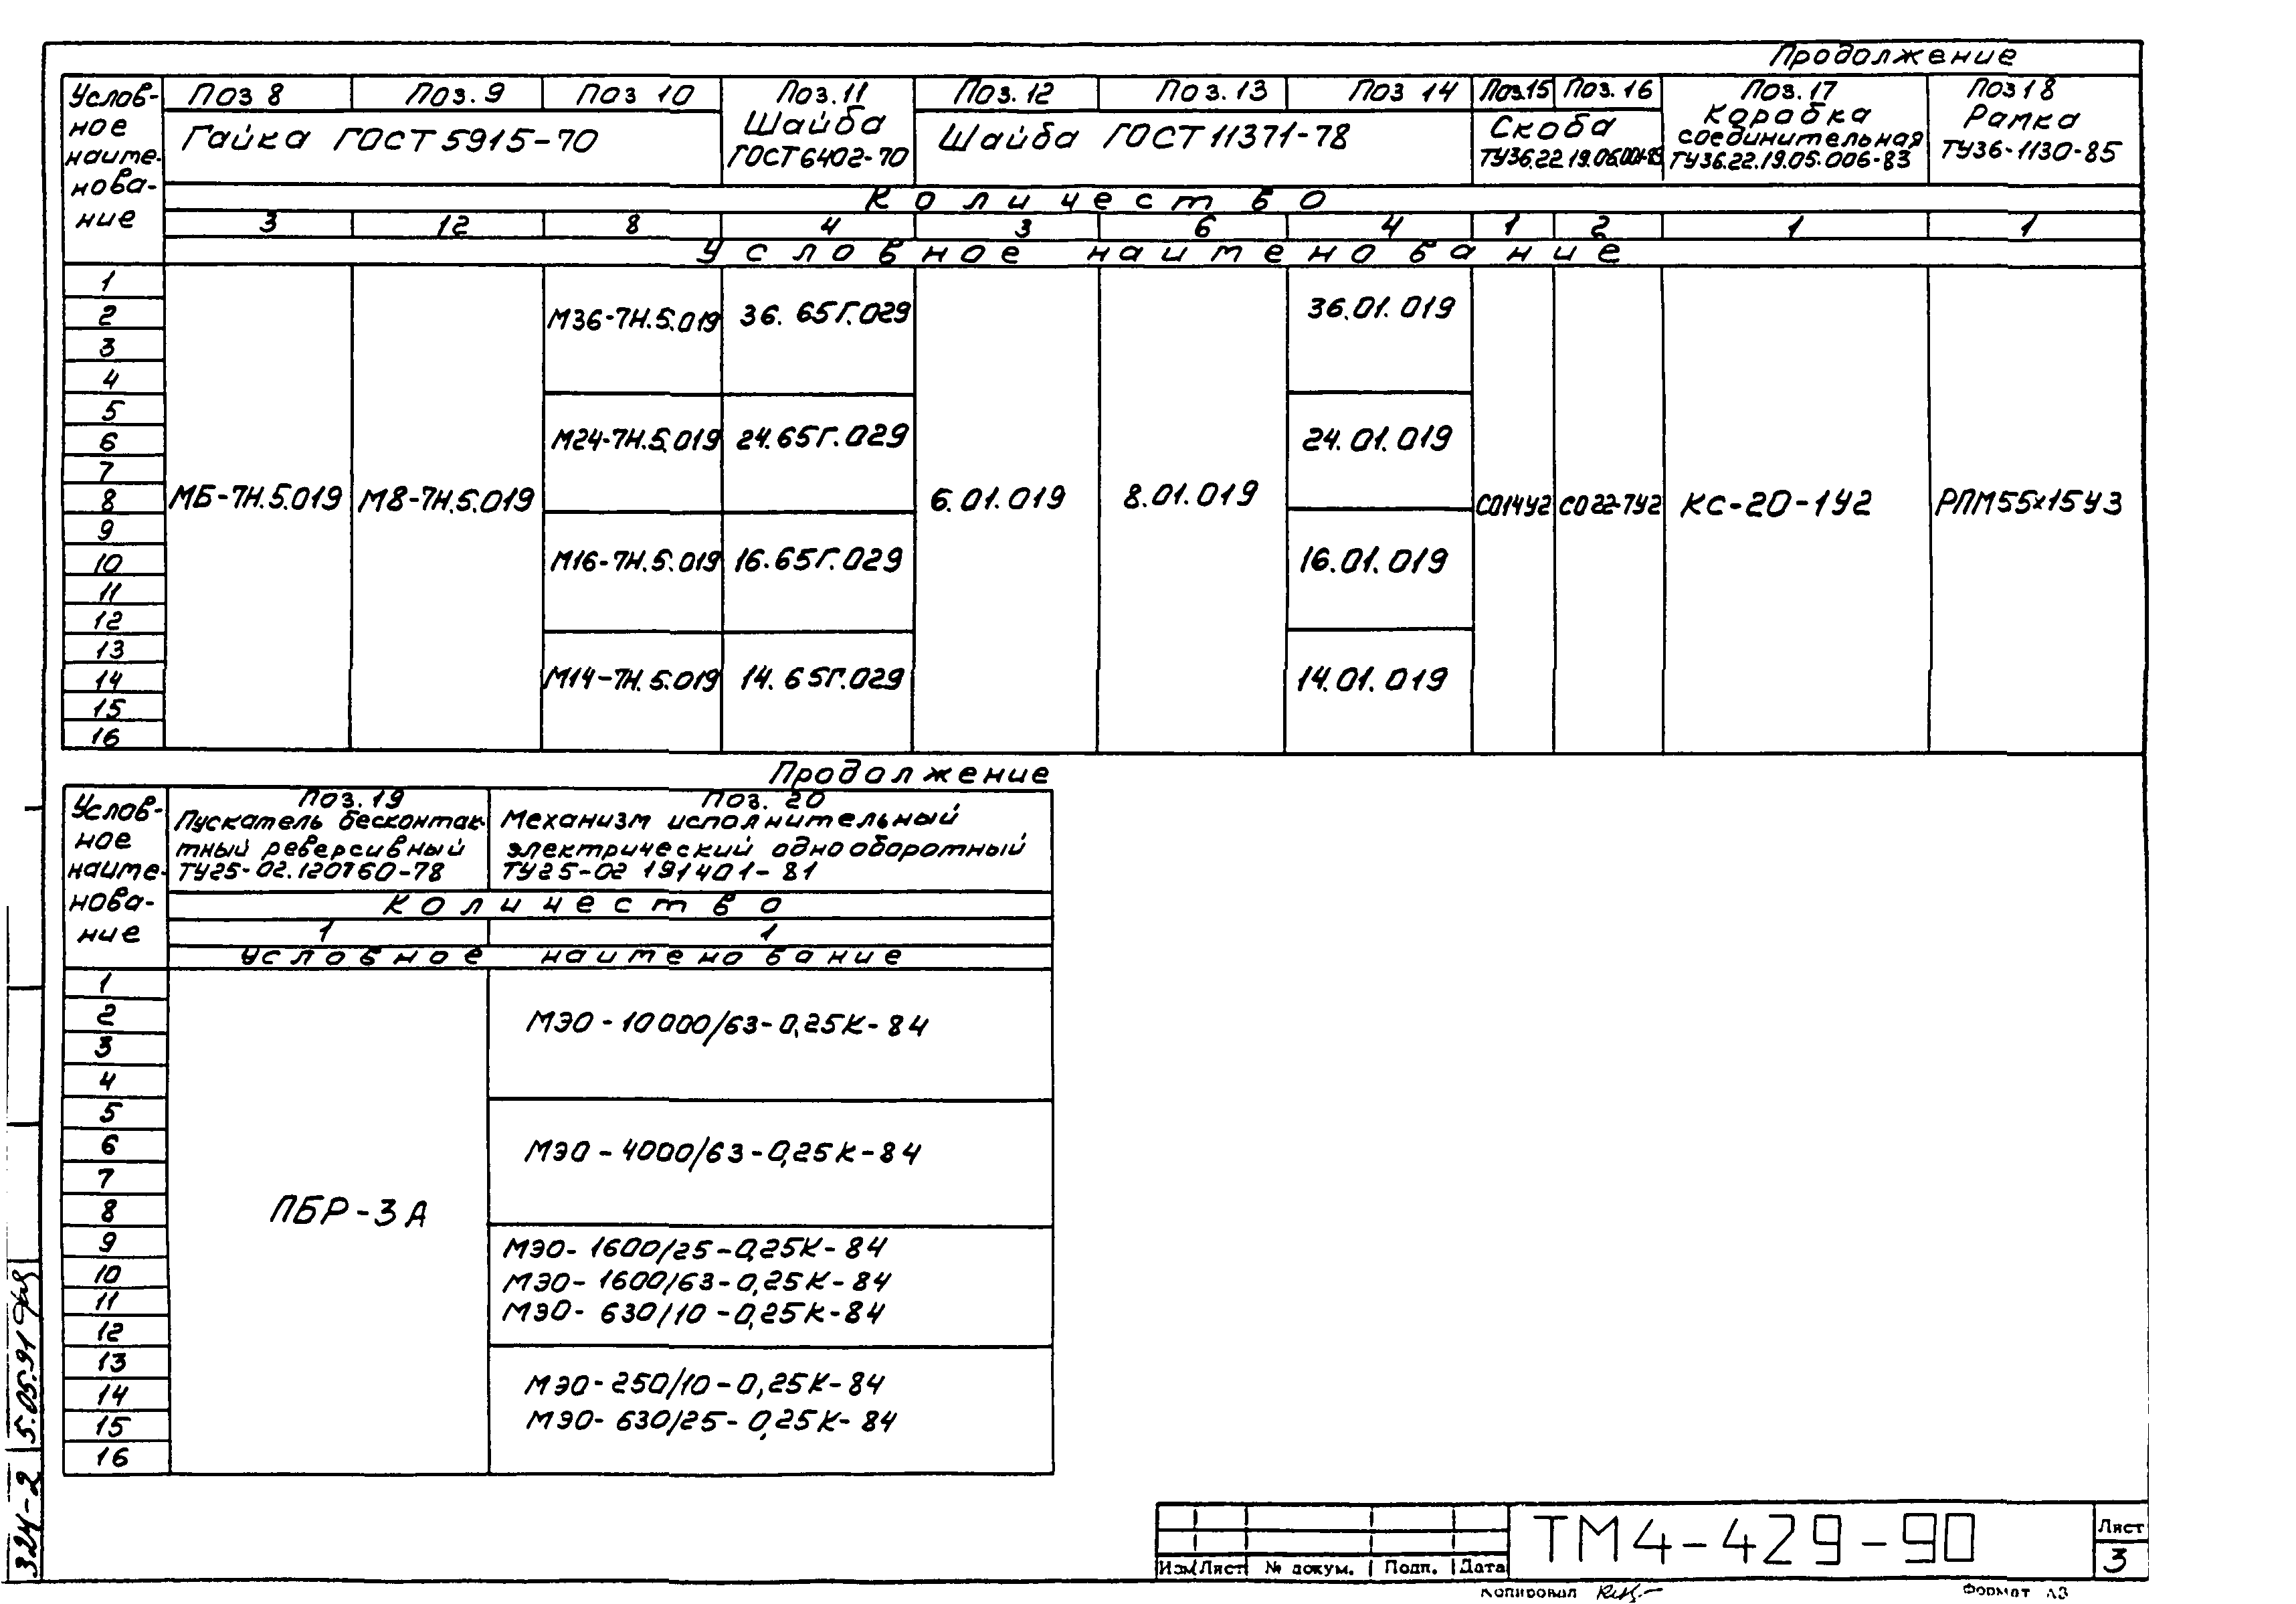 Продолжение
Услов-
ное
наиме-
нова-
ние
Поз 8
Поз. 9
Поз 10
Поз. 11
Поз. 12
Поз. 13
Поз 14
Поз 15
Поз. 16
Поз. 17
Поз 18
Гайка ГОСТ 5915-70
Шайба
ГОСТ 6402-70
Шайба ГОСТ 11371-78
Скоба
ТУ36.22.19.06.001-83
Коробка
соединительная
ТУ36.22.19.05.006-83
Рамка
ТУ36-1130-85
Количество
3 12 8 4 3 6 4 1 2 1 1
Условное наименование
1
2
3
4
5
6
7
8
9
10
11
12
13
14
15
16
М6-7Н.5.019
М8-7Н.5.019
М36-7Н.5.019
М24-7Н.5.019
М16-7Н.5.019
М14-7Н.5.019
36.65Г.029
24.65Г.029
16.65Г.029
14.65Г.029
6.01.019
8.01.019
36.01.019
24.01.019
16.01.019
14.01.019
СО14У2
СО22-7У2
КС-20-1У2
РПМ55х15У3
Продолжение
Услов-
ное
наиме-
нова-
ние
Поз. 19
Пускатель бесконтак-
тный реверсивный
ТУ25-02.120760-78
Поз. 20
Механизм исполнительный
электрический однооборотный
ТУ25-02 191401-81
Количество
1 1
Условное наименование
1
2
3
4
5
6
7
8
9
10
11
12
13
14
15
16
ПБР-3А
МЭО-10000/63-0,25К-84
МЭО-4000/63-0,25К-84
МЭО-1600/25-0,25К-84
МЭО-1600/63-0,25К-84
МЭО-630/10-0,25К-84
МЭО-250/10-0,25К-84
МЭО-630/25-0,25К-84
324-2 5.05.91
Изм Лист № докум. Подп. Дата
ТМ4-429-90
Лист
3
Копировал
Формат А3